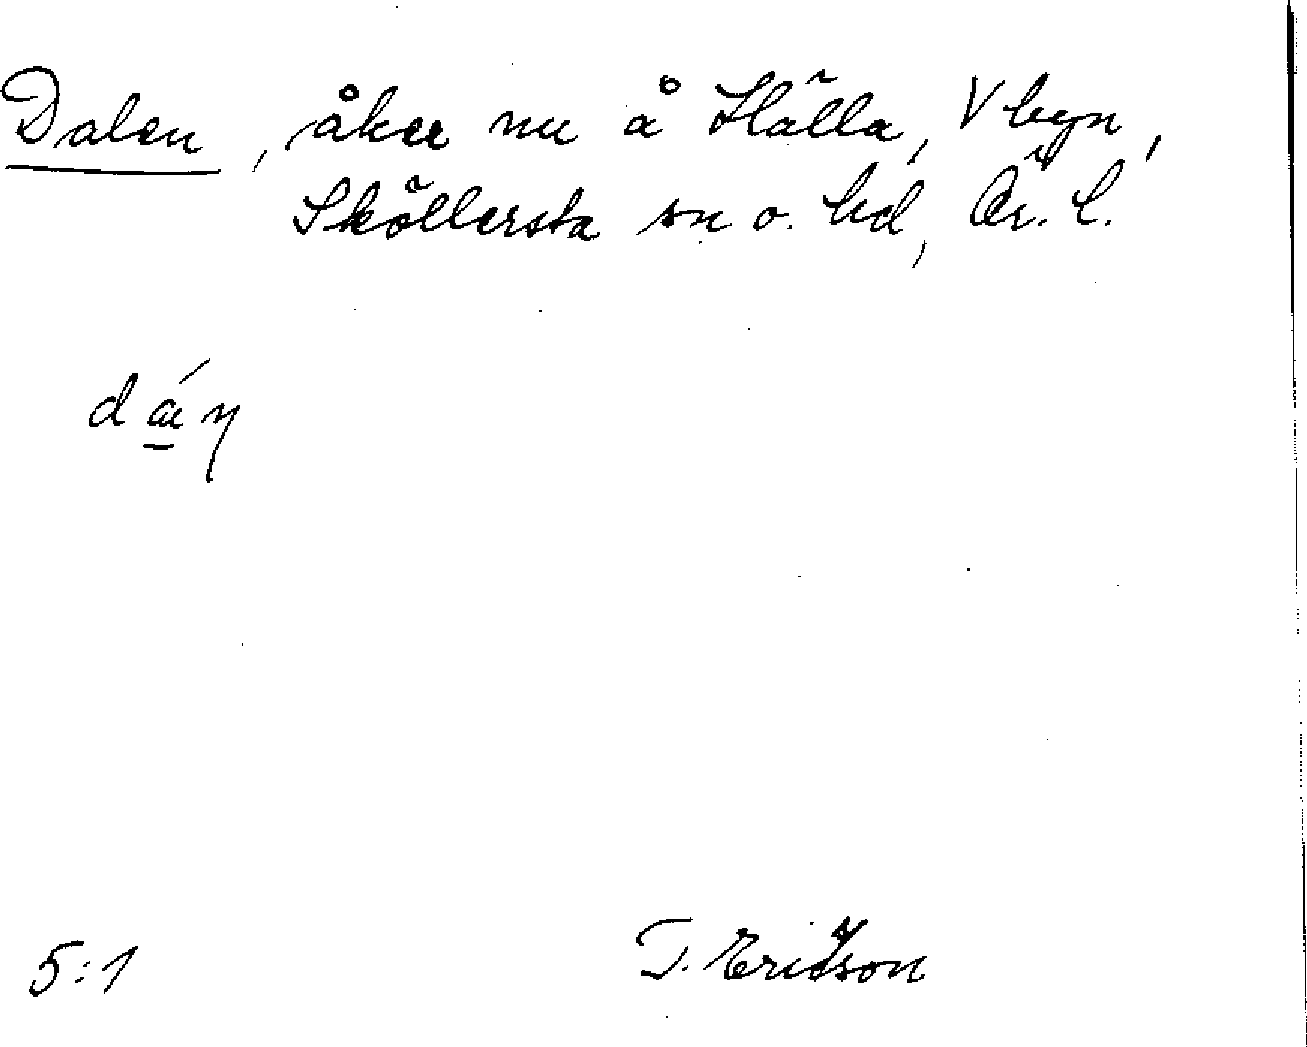 Dalen, åker nu å Hälla, V byn,
Sköllersta sn o. hd, Ör. l.
dá̱ŋ
5:1
T. Ericsson